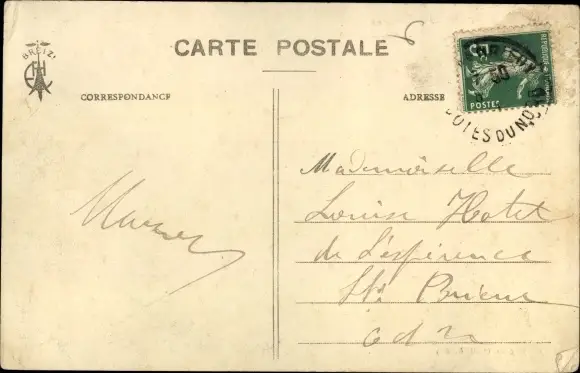 BREIZ
CARTE POSTALE
6
CORRESPONDANCE
ADRESSE
POSTES
COTES DU NORD
Mademoiselle
Louise Hotel
de L'espérence
St Brieuc
cdn